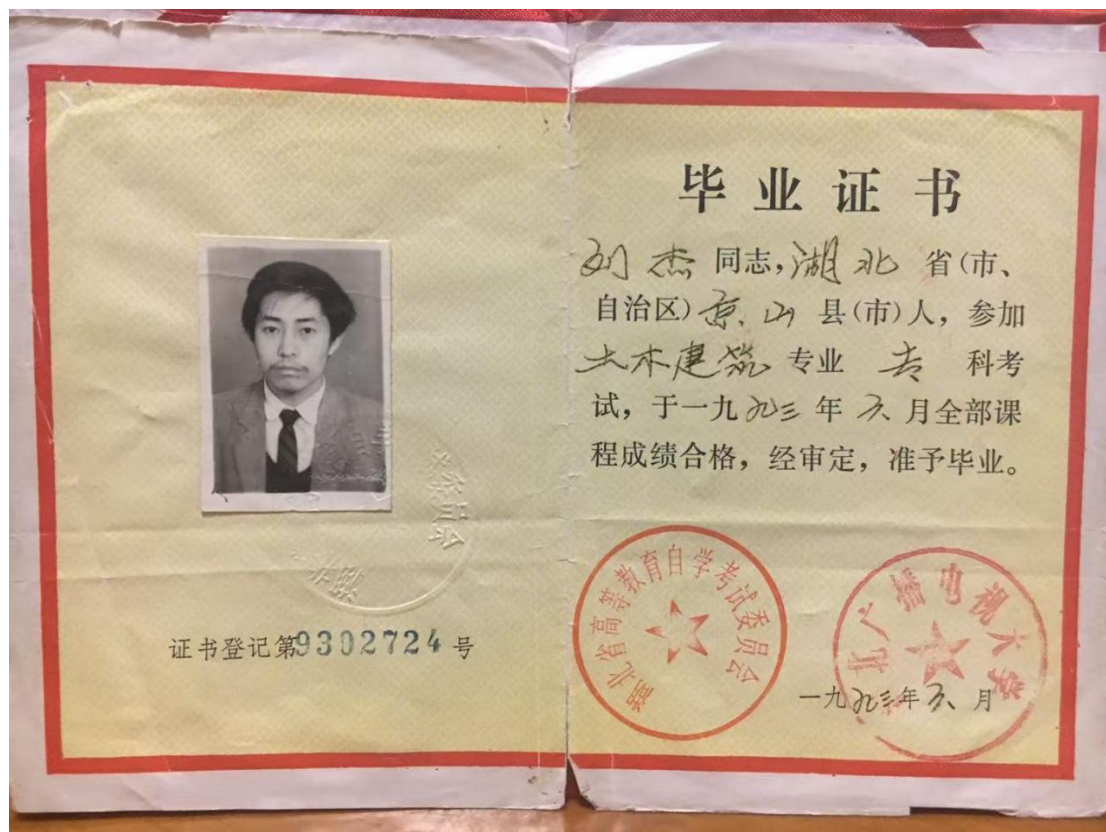 证书登记第9302724号
毕业证书
刘杰同志，湖北省（市、
自治区）京山县（市）人，参加
土木建筑专业专科考
试，于一九九三年六月全部课
程成绩合格，经审定，准予毕业。
湖北省高等教育自学考试委员会
北广播电视大学
一九九三年六月